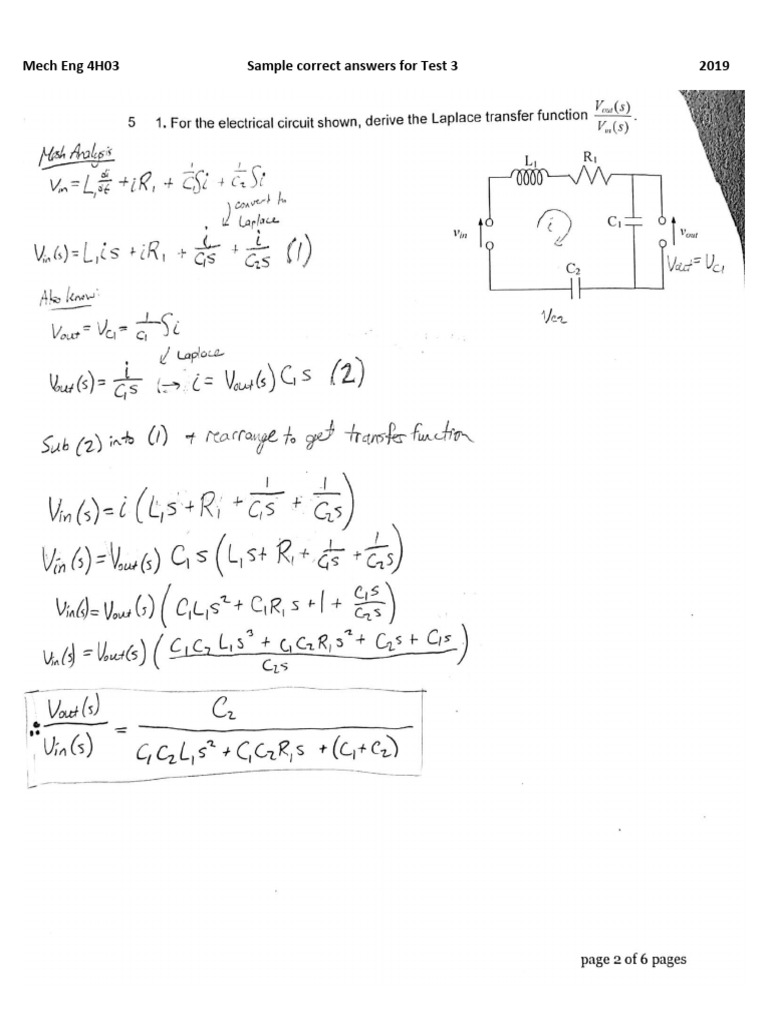 Mech Eng 4H03 Sample correct answers for Test 3 2019
5 1. For the electrical circuit shown, derive the Laplace transfer function V_out(s)/V_in(s).
Mesh Analysis
V_in = L_1 di/dt + iR_1 + 1/C_1 ∫i + 1/C_2 ∫i
) convert to
↙ Laplace
V_in(s) = L_1 i s + iR_1 + i/C_1s + i/C_2s (1)
L_1 R_1
v_in i C_1 v_out
C_2
V_out = V_C1
V_C2
Also know:
V_out = V_C1 = 1/C_1 ∫i
↙ Laplace
V_out(s) = i/C_1s ↦ i = V_out(s) C_1 s (2)
Sub (2) into (1) + rearrange to get transfer function
V_in(s) = i (L_1s + R_1 + 1/C_1s + 1/C_2s)
V_in(s) = V_out(s) C_1s (L_1s + R_1 + 1/C_1s + 1/C_2s)
V_in(s) = V_out(s) (C_1L_1s² + C_1R_1s + 1 + C_1s/C_2s)
V_in(s) = V_out(s) ((C_1C_2L_1s³ + C_1C_2R_1s² + C_2s + C_1s)/C_2s)
∴ V_out(s)/V_in(s) = C_2/(C_1C_2L_1s² + C_1C_2R_1s + (C_1+C_2))
page 2 of 6 pages